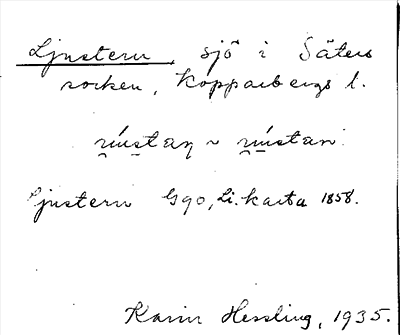 Ljustern, sjö i Säters
socken, Kopparbergs l.
Ljustern Gqo, Li. karta 1858.
Karin Hessling, 1935.